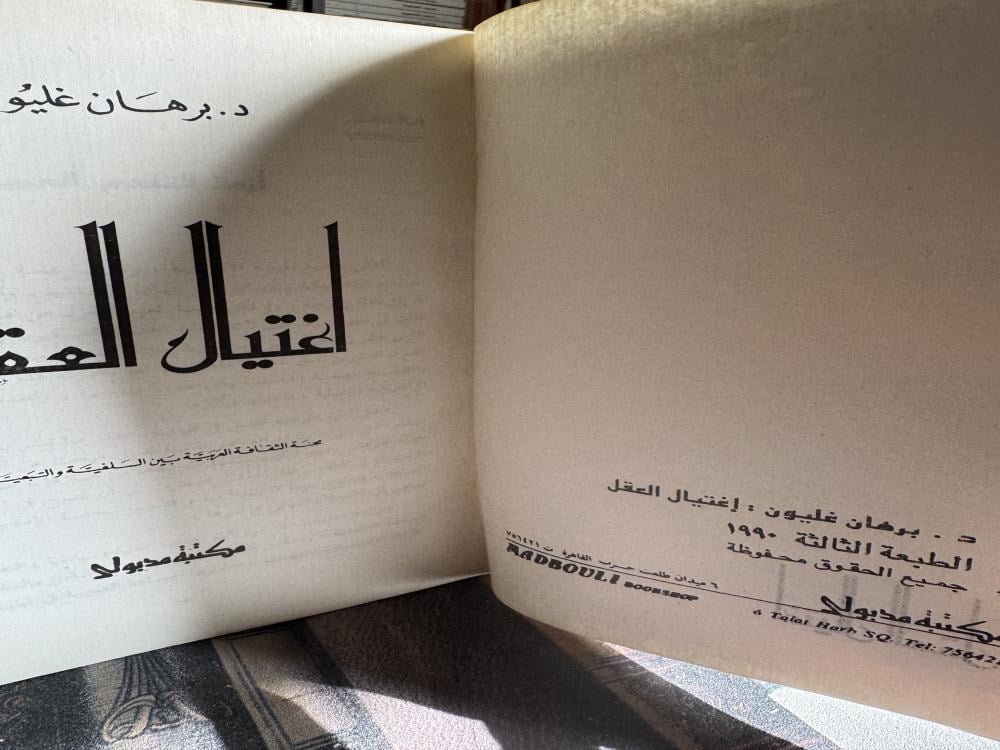 د. برهان غليو
اغتيال العق
محنة الثقافة العربية بين السلفية والتبعية
مكتبة مدبولي
د. برهان غليون : إغتيال العقل
الطبعة الثالثة ١٩٩٠
جميع الحقوق محفوظة
مكتبة مدبولي
٦ ميدان طلعت حرب القاهرة ت ٧٥٦٤٢١
MADBOULI BOOKSHOP
6 Talat Harb SQ. Tel: 756421